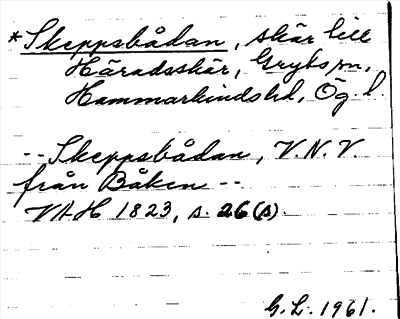 *Skeppsbådan, skär till
Häradsskär, Gryts sn,
Hammarkinds hd, Ög. l.
-- Skeppsbådan, V.N.V.
från Båken --
VAH 1823, s. 26 (B).
G.L. 1961.